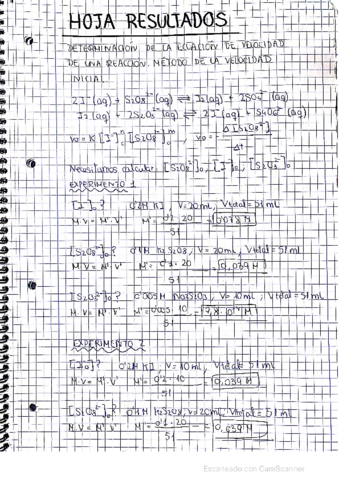 HOJA RESULTADOS
DETERMINACIÓN DE LA ECUACIÓN DE VELOCIDAD
DE UNA REACCIÓN. MÉTODO DE LA VELOCIDAD
INICIAL
2I⁻(aq) + S₂O₈²⁻(aq) ⇌ I₂(aq) + 2SO₄²⁻(aq)
I₂(aq) + 2S₂O₃²⁻(aq) ⇌ 2I⁻(aq) + S₄O₆²⁻(aq)
v₀ = K [I⁻]ⁿ₀ [S₂O₈²⁻]ᵐ₀, v₀ = -Δ[S₂O₈²⁻] / Δt
Necesitamos calcular: [S₂O₈²⁻]₀, [I⁻]₀, [S₂O₃²⁻]₀
EXPERIMENTO 1
[I⁻]₀? 0'2M KI, V=20mL, Vtotal=51mL
M·V = M'·V' M' = 0'2·20 / 51 = 0,078 M
[S₂O₈²⁻]₀? 0'1M K₂S₂O₈, V=20mL, Vtotal=51mL
M·V = M'·V' M' = 0'1·20 / 51 = 0,039 M
[S₂O₃²⁻]₀? 0'005M Na₂S₂O₃, V=10mL, Vtotal=51mL
M·V = M'·V' M' = 0'005·10 / 51 = 9,8·10⁻⁴ M
EXPERIMENTO 2
[I₀]? 0'2M KI, V=10mL, Vtotal=51mL
M·V = M'·V' M' = 0'2·10 / 51 = 0,039 M
[S₂O₈²⁻]₀? 0'1M K₂S₂O₈, V=20mL, Vtotal=51mL
M·V = M'·V' M' = 0'1·20 / 51 = 0,039 M
Escaneado con CamScanner